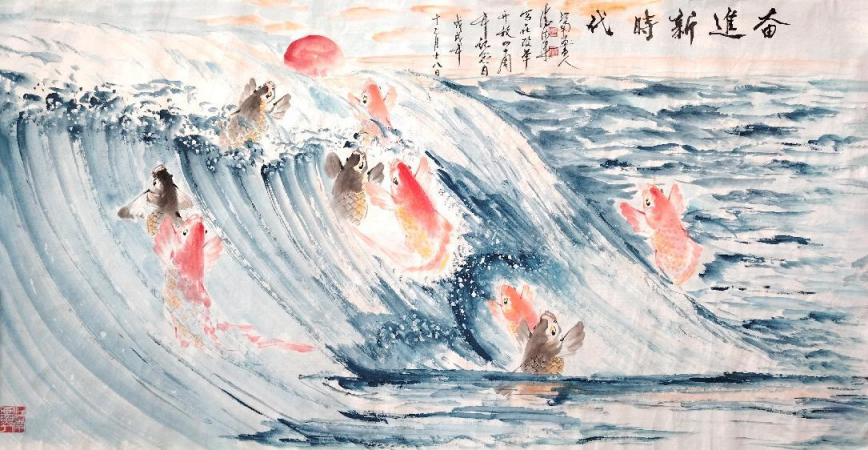 奋進新時代
写在改革
开放四十周
年纪念日
戊戌年
十二月十八日